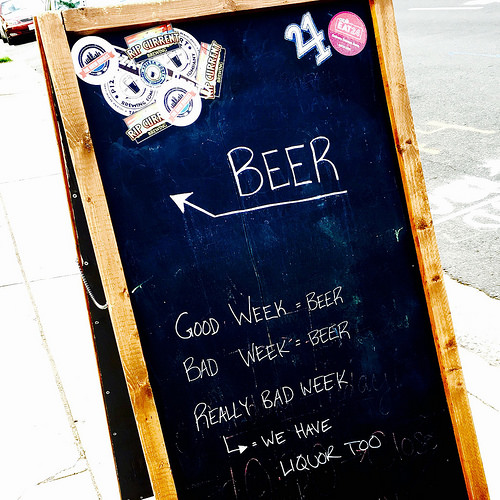 RIP CURRENT
BREWING
RIP CURRENT
RIP CURR
BREWING
BREWING COMPANY
24
EAT24
BEER
GOOD WEEK = BEER
BAD WEEK = BEER
REALLY BAD WEEK
= WE HAVE
LIQUOR TOO